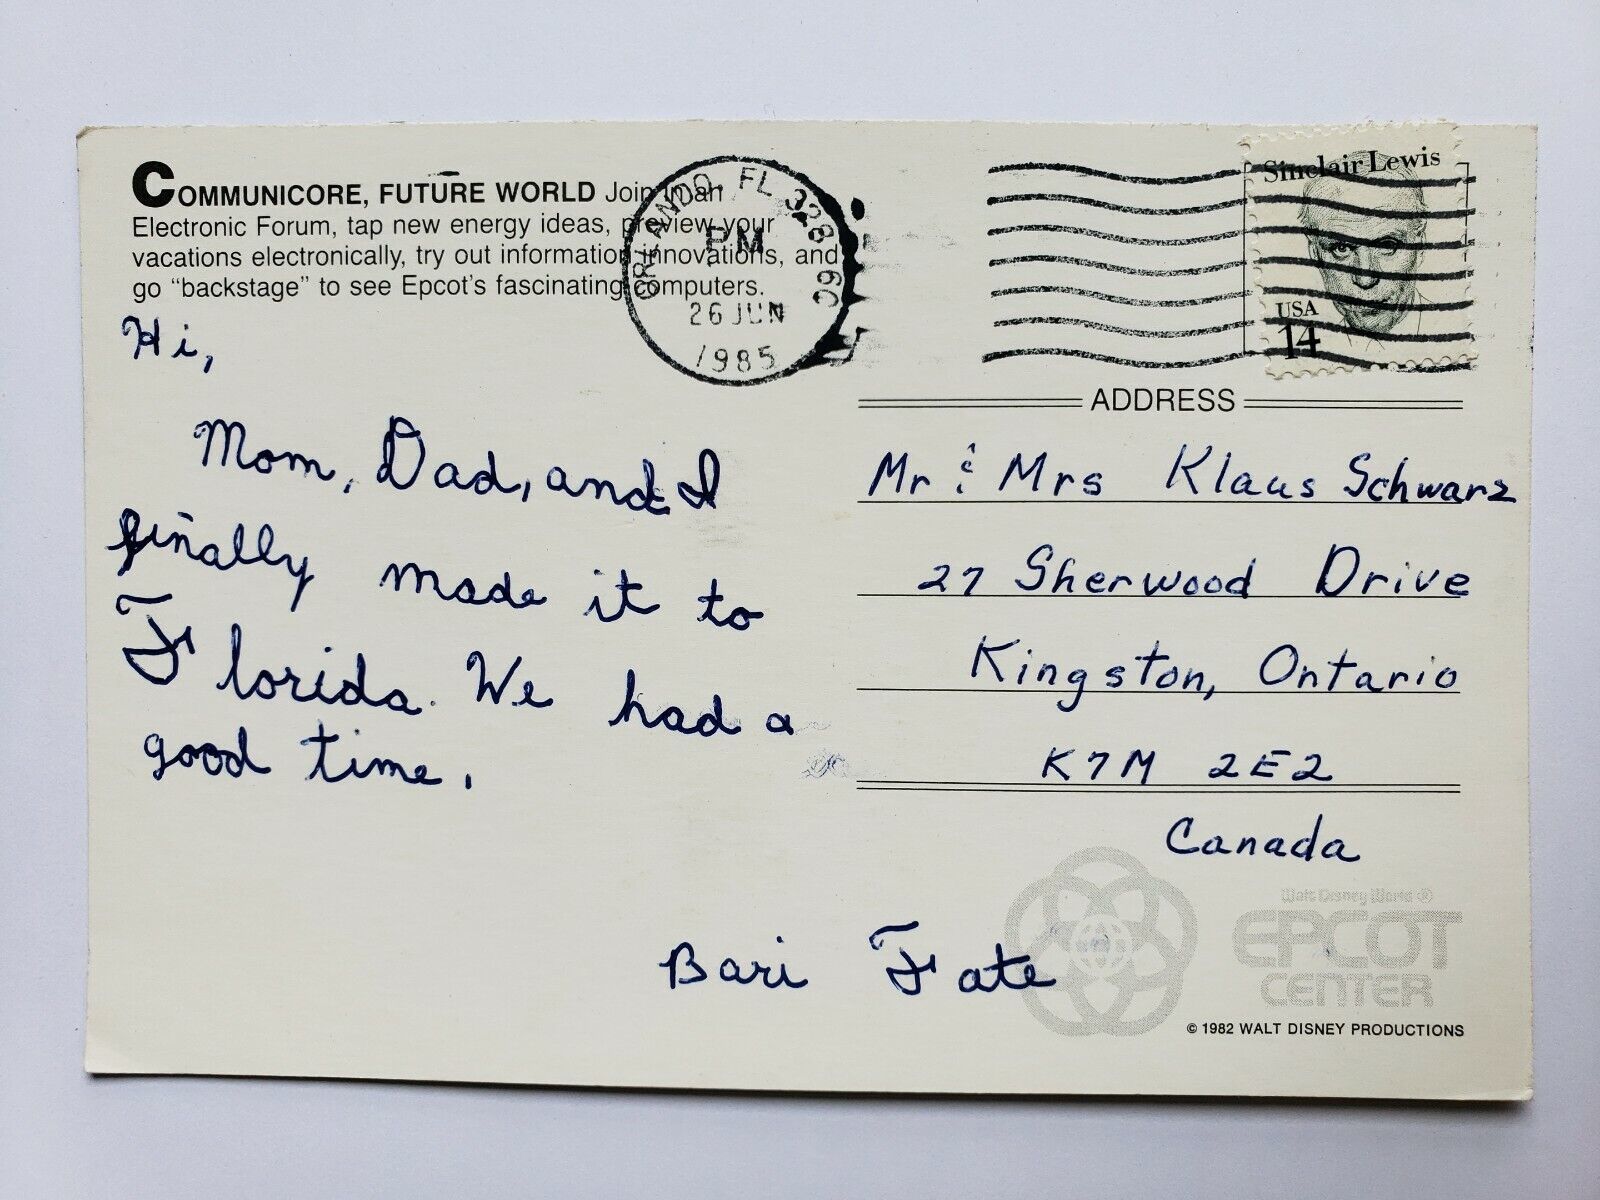 COMMUNICORE, FUTURE WORLD Join in an
Electronic Forum, tap new energy ideas, preview your
vacations electronically, try out information innovations, and
go “backstage” to see Epcot's fascinating computers.
ORLANDO, FL 328
PM
26 JUN
1985
Sinclair Lewis
USA
14
Hi,
Mom, Dad, and I
finally made it to
Florida. We had a
good time.
Bari Fate
ADDRESS
Mr & Mrs Klaus Schwarz
27 Sherwood Drive
Kingston, Ontario
K7M 2E2
Canada
Walt Disney World ®
EPCOT
CENTER
© 1982 WALT DISNEY PRODUCTIONS